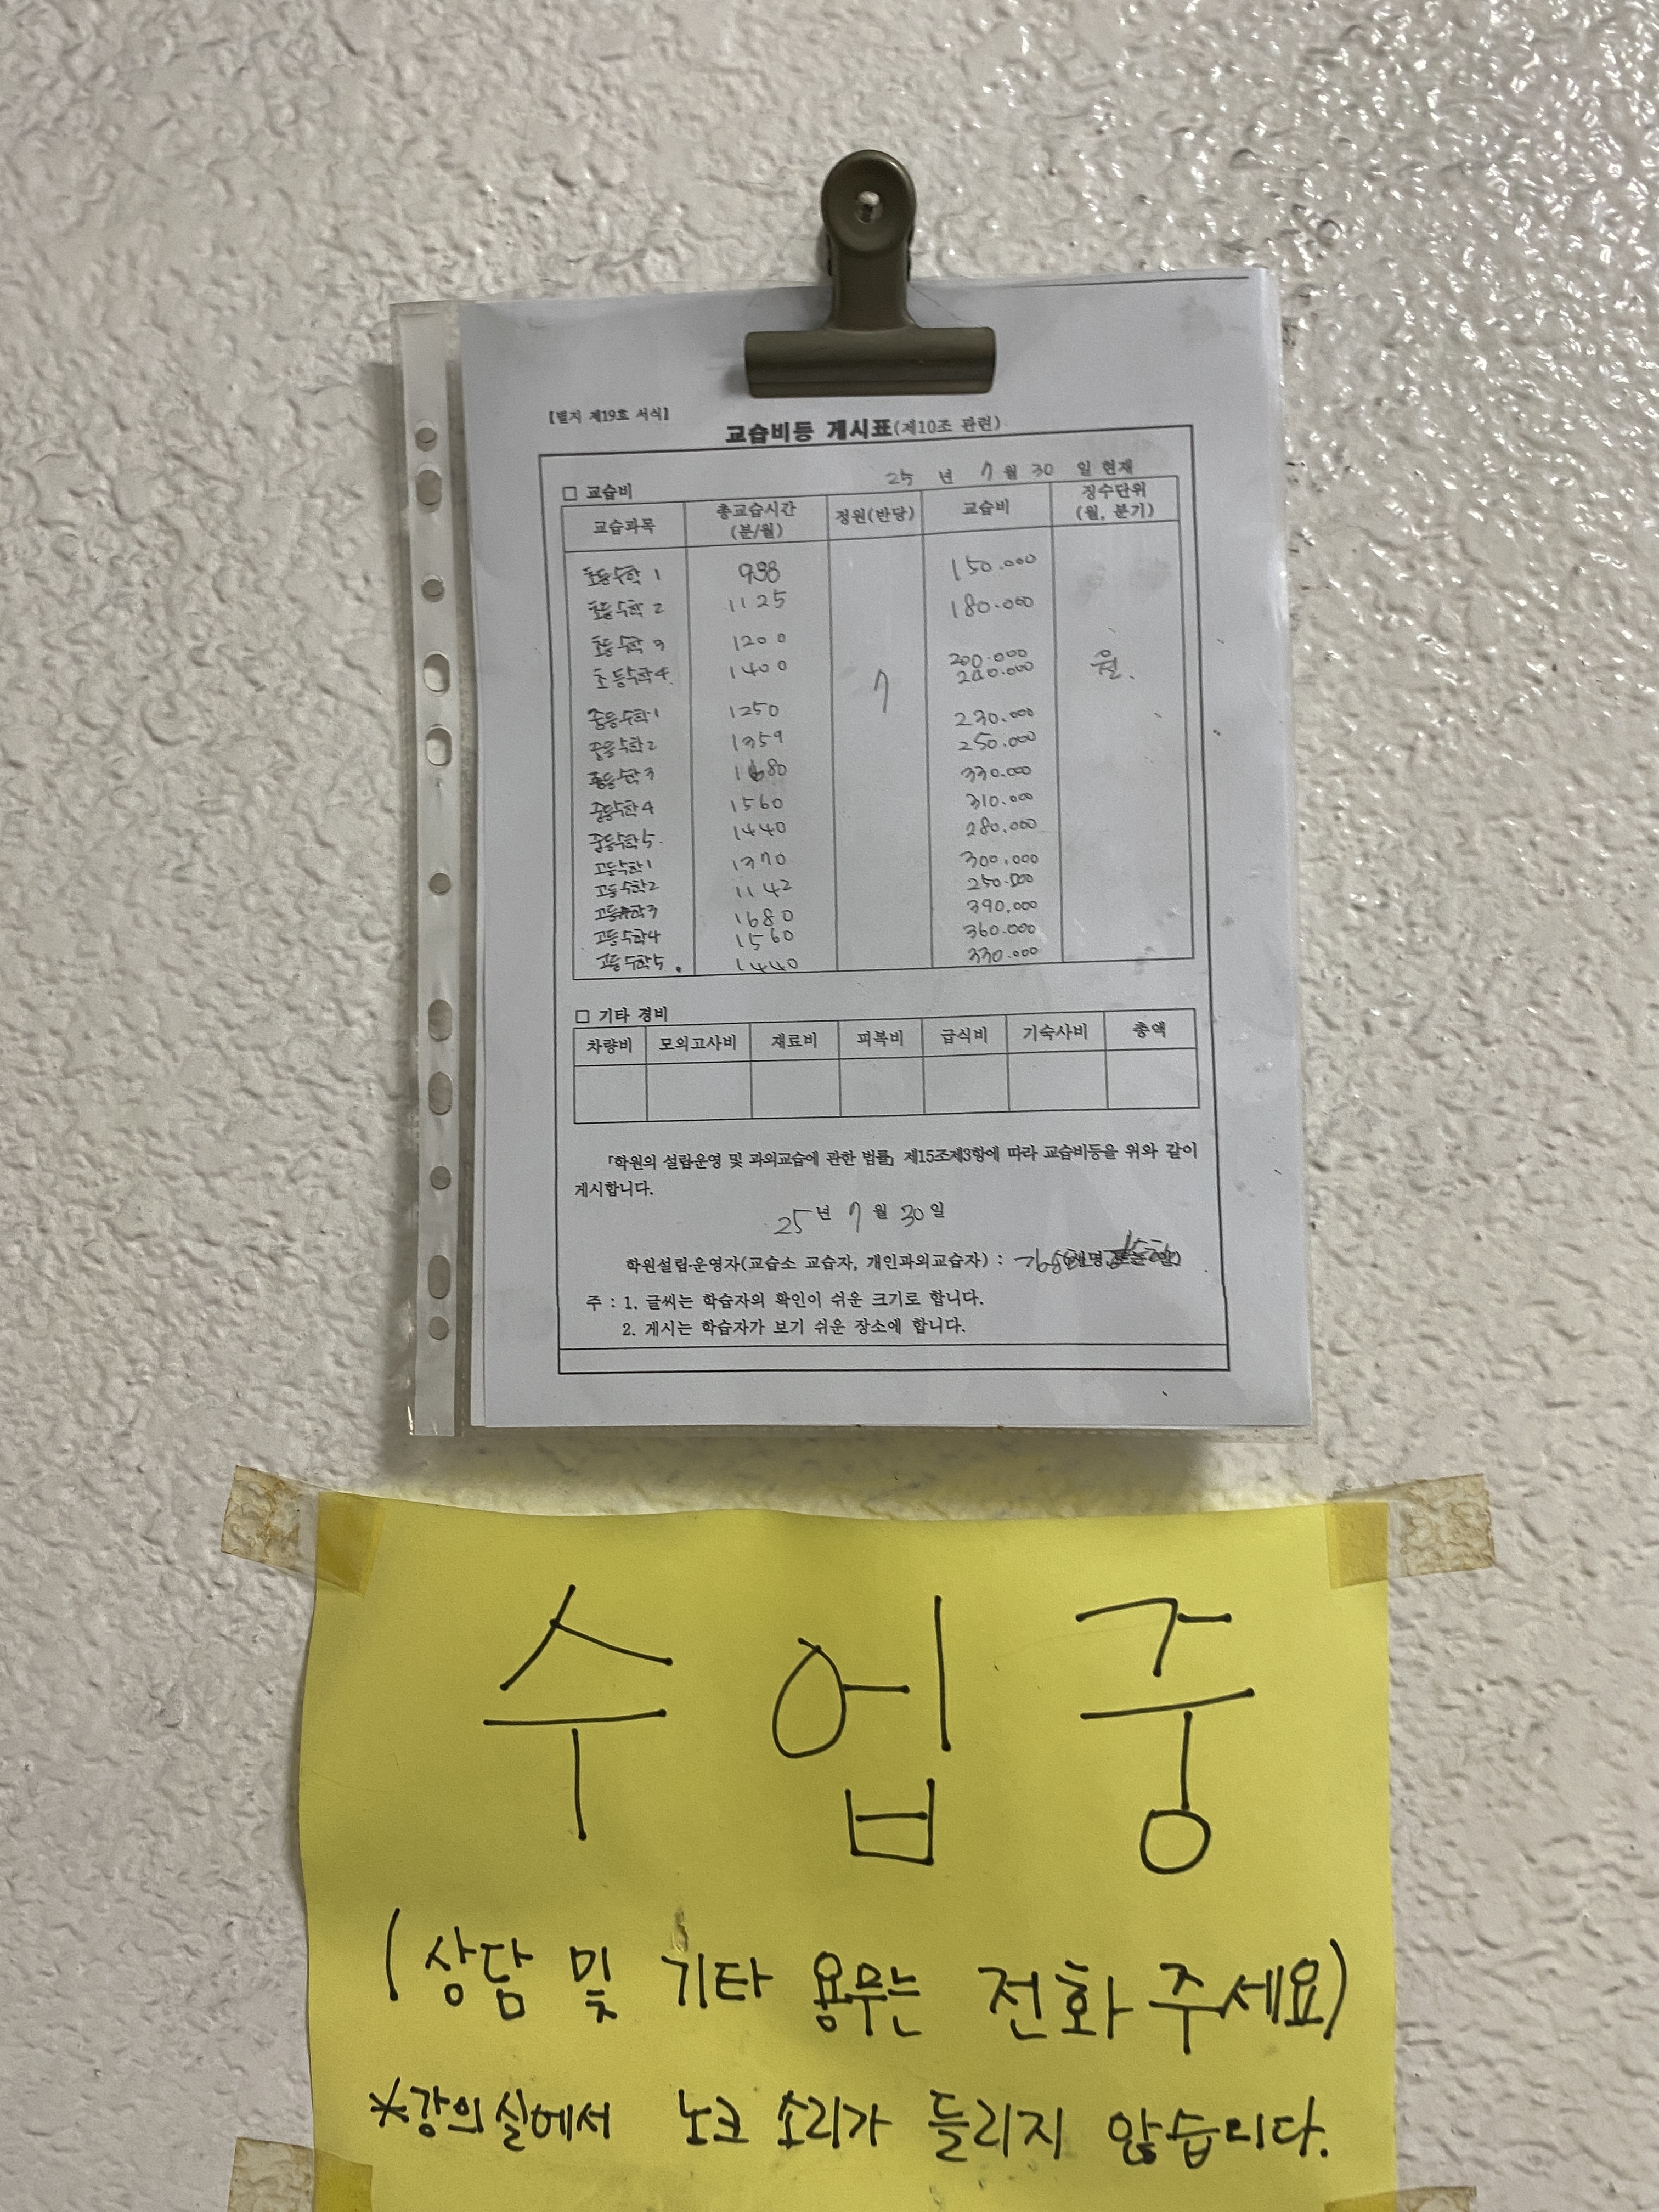 【별지 제19호 서식】
교습비등 게시표(제10조 관련)
□ 교습비 25 년 7 월 30 일 현재
교습과목 총교습시간 (분/월) 정원(반당) 교습비 징수단위 (월, 분기)
초등수학 1 938 150.000
초등수학 2 1125 180.000
초등수학 3 1200 200.000
초등수학4. 1400 240.000
7 월.
중등수학1 1250 230.000
중등수학2 1359 250.000
중등수학3 1680 330.000
중등수학4 1560 310.000
중등수학5. 1440 280.000
고등수학1 1370 300.000
고등수학2 1142 250.000
고등수학3 1680 390.000
고등수학4 1560 360.000
고등수학5. 1440 330.000
□ 기타 경비
차량비 모의고사비 재료비 피복비 급식비 기숙사비 총액
「학원의 설립·운영 및 과외교습에 관한 법률」 제15조제3항에 따라 교습비등을 위와 같이
게시합니다.
25 년 7 월 30 일
학원설립·운영자(교습소 교습자, 개인과외교습자) :
주 : 1. 글씨는 학습자의 확인이 쉬운 크기로 합니다.
2. 게시는 학습자가 보기 쉬운 장소에 합니다.
수업중
(상담 및 기타 용무는 전화 주세요)
*강의실에서 노크 소리가 들리지 않습니다.